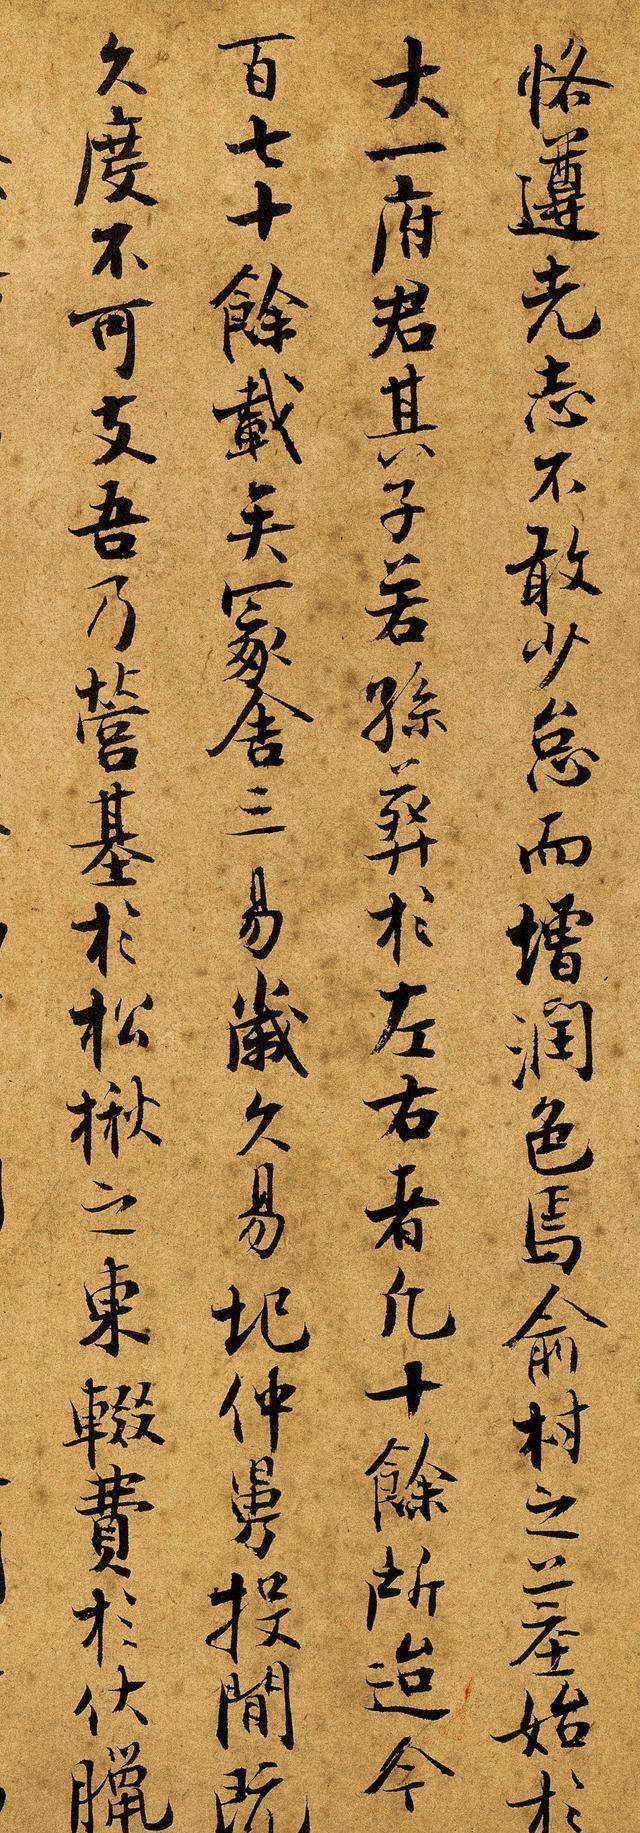 恪遵先志不敢少怠而增潤色焉俞村之墓始於
大一府君其子若孫葬於左右者凡十餘所迨今
百七十餘載矣冢舍三易歲久易圮仲舅投閒既
久度不可支吾乃營基於松楸之東輟費於伏臘